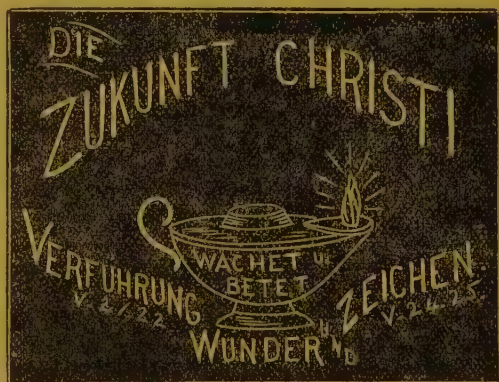 DIE
ZUKUNFT CHRISTI
WACHET U.
BETET
VERFUHRUNG
V. 21/22
WUNDER UND
ZEICHEN
V. 24.25.